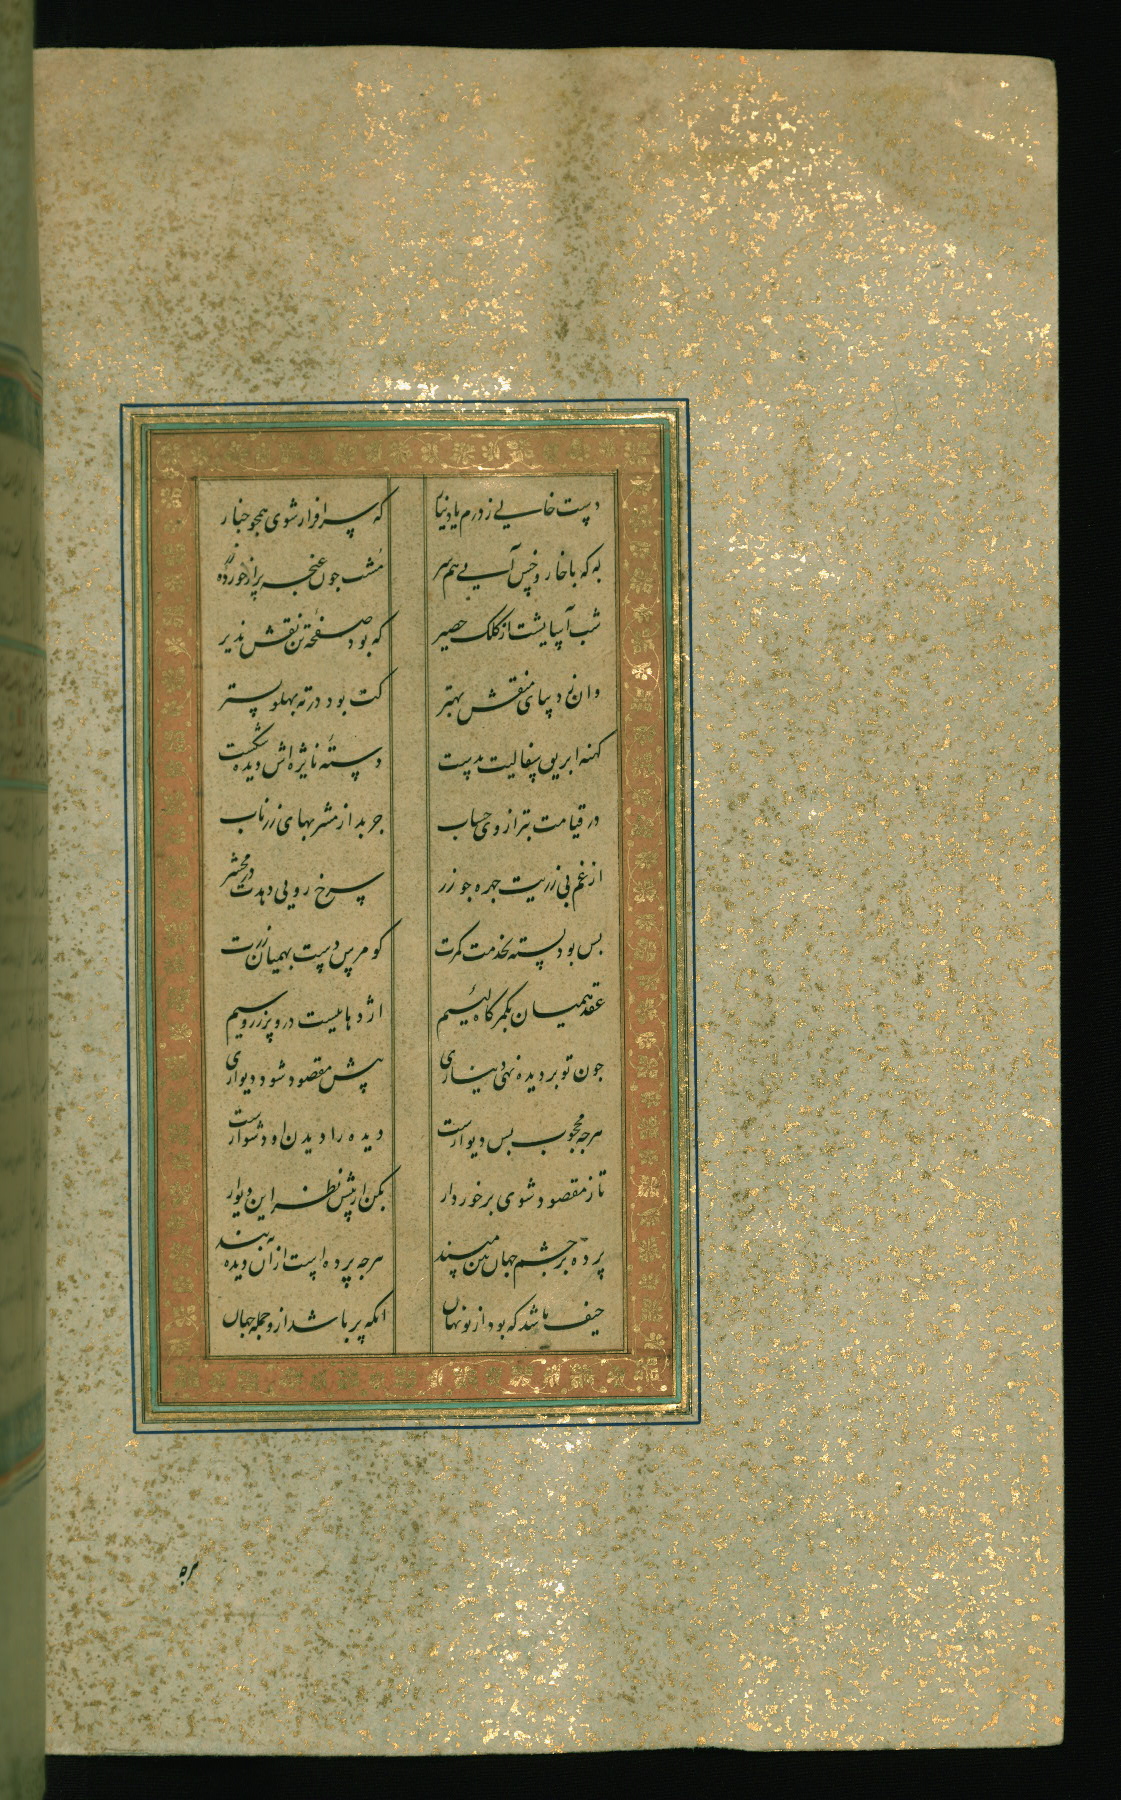 دست خالی ز درم یا دینار که سرافراز شوی همچو خیار
به که با خار و خس آیی هم سر مشت چون غنچه پر از خرده زر
شب آسایشت از کلک حصیر که بود صفحه تن نقش پذیر
وان ز دیبای منقش بهتر کت بود در ته پهلو بستر
کهنه ابریق سفالیت بدست دسته نایژه اش دیده شکست
در قیامت بترازوی حساب چربد از مشربهای زر ناب
از غم بی زریت چهره چو زر سرخ رویی دهدت در محشر
بس بود بسته بخدمت کمرت کو مرس دست بهمیان زرت
عقد همیان بکمرگاه لئیم اژدهاییست درو پر زر و سیم
چون تو بر دیده نهی دیناری پیش مقصود شود دیواری
هرچه محجوب پس دیوارست دیده را دیدن او دشوارست
تا ز مقصود شوی برخوردار بکن از پیش نظر این دیوار
پرده بر چشم جهان بین مپسند هرچه پرده است ازان دیده ببند
حیف باشد که بود از تو نهان انکه پر باشد ازو جمله جهان